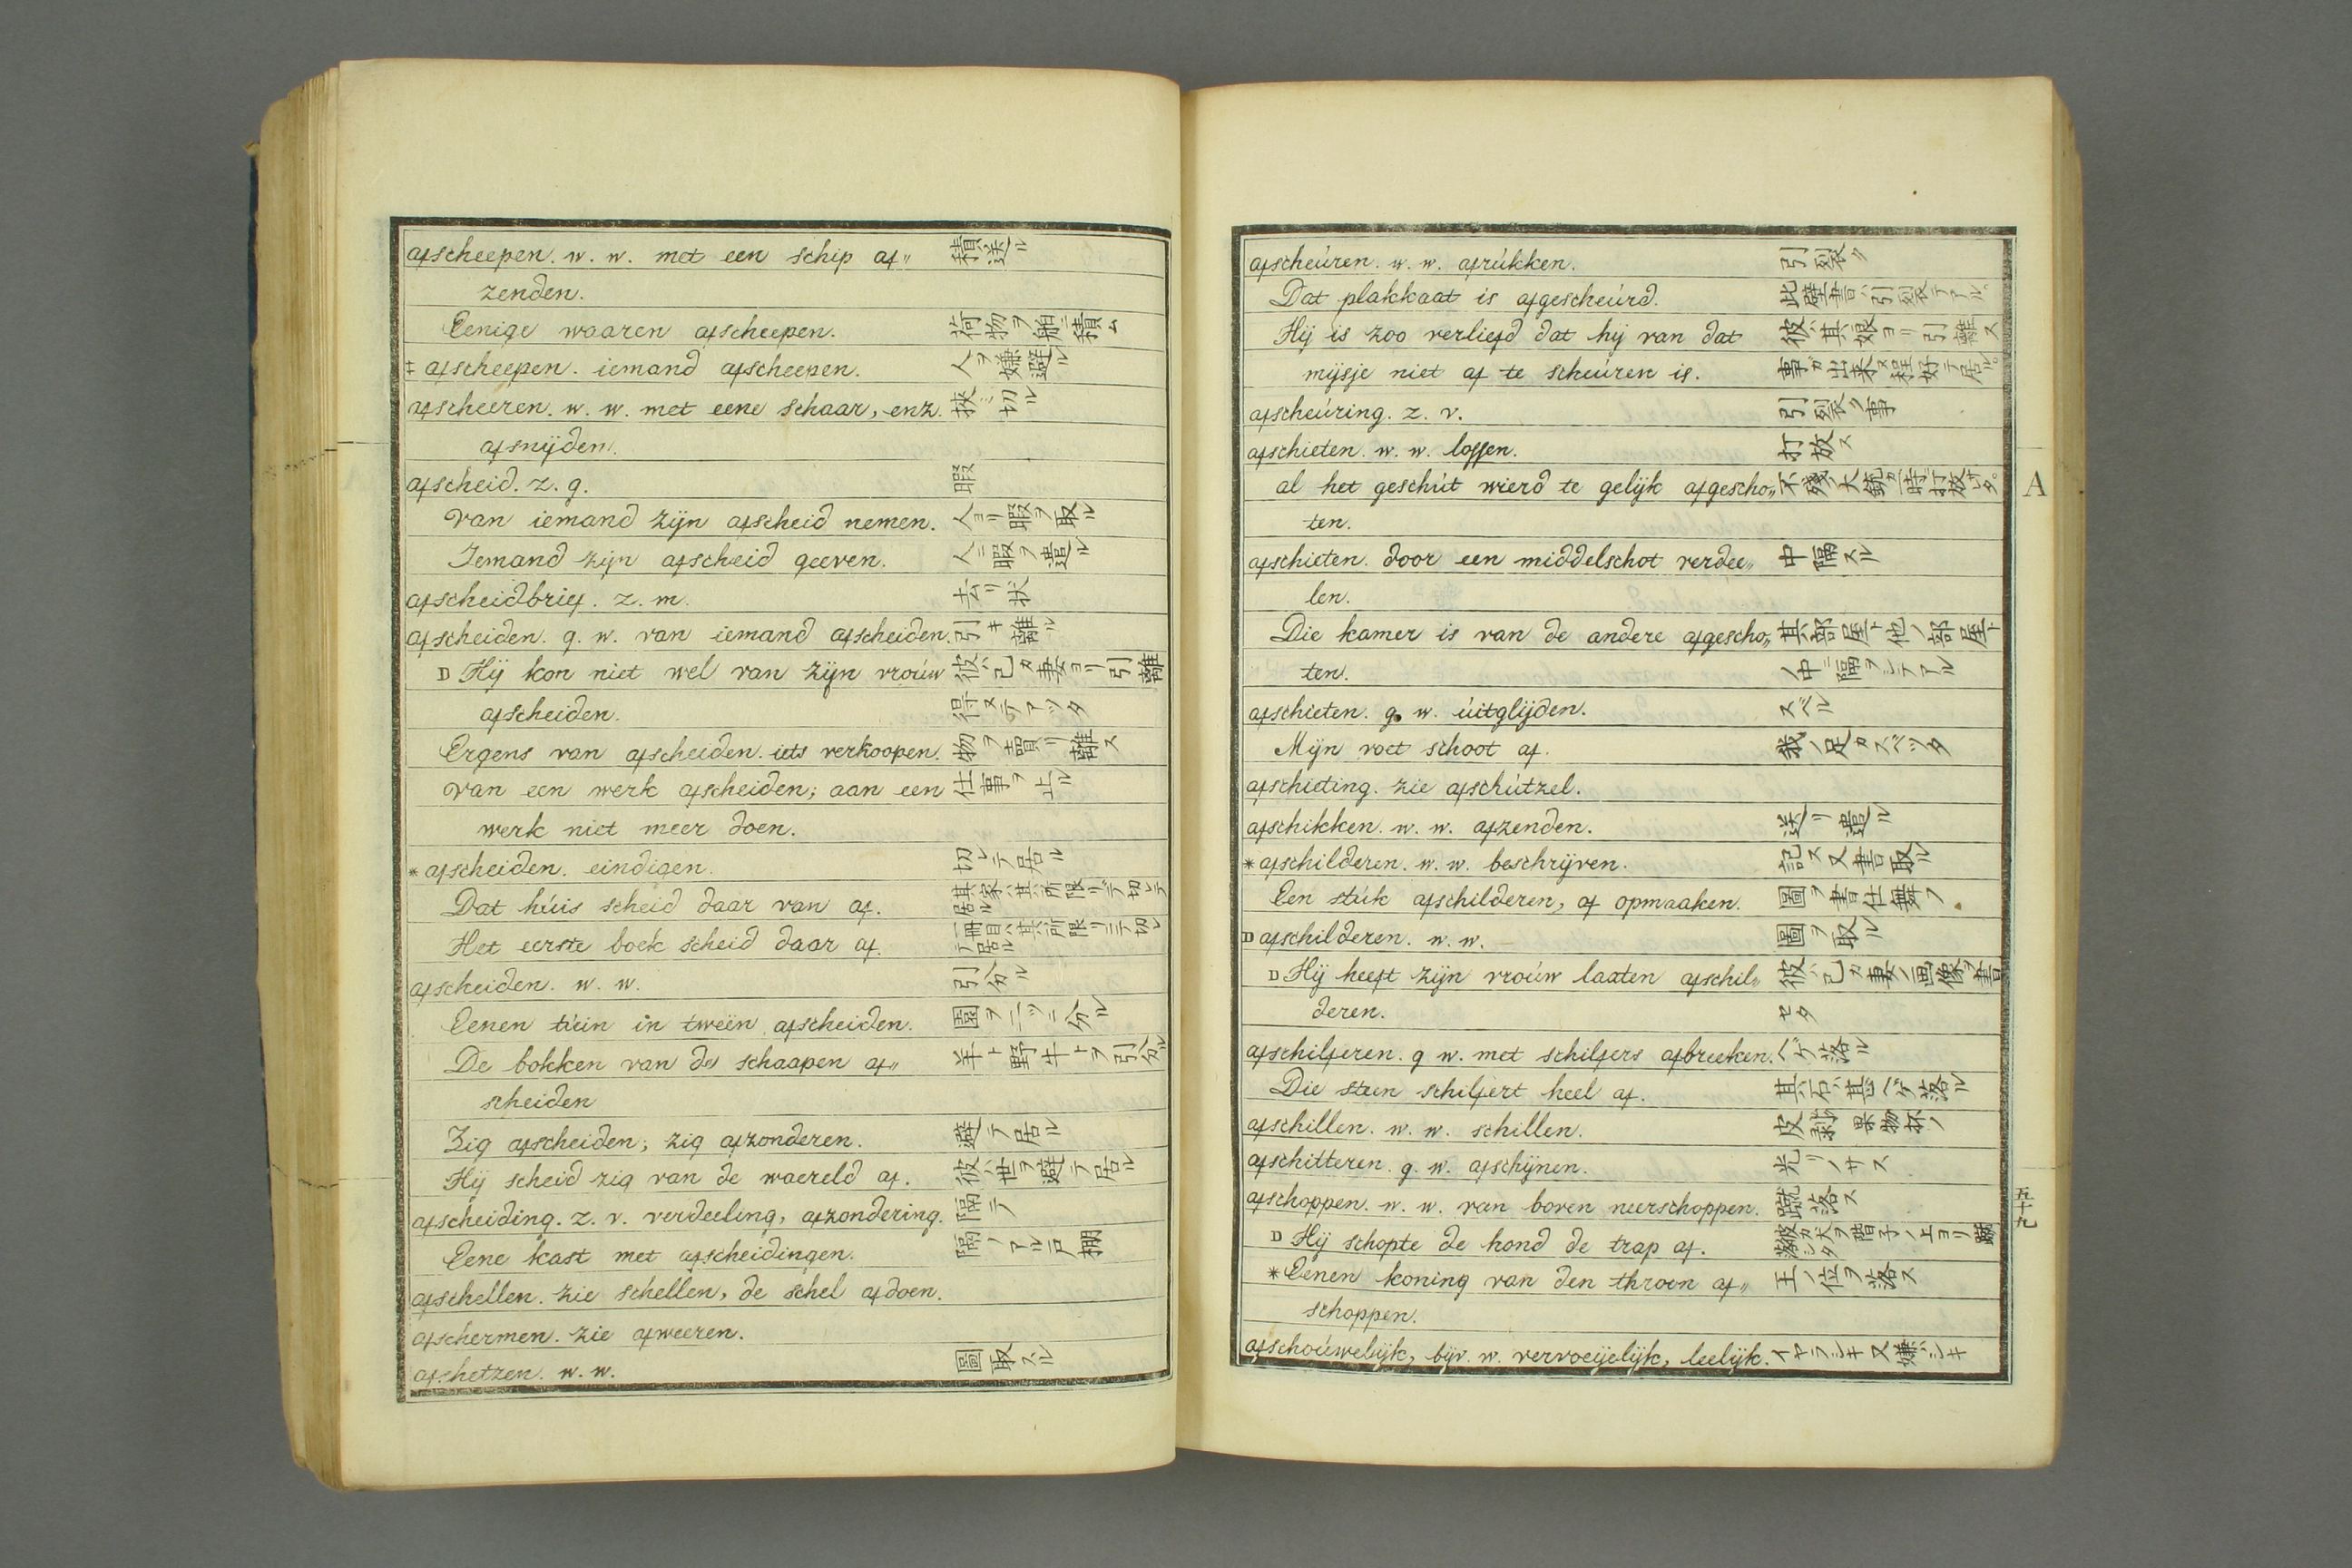 afscheepen. w. w. met een schip af〃 積送ル
zenden.
Eenige waaren afscheepen. 荷物ヲ舶ニ積ム
‡ afscheepen. iemand afscheepen. 人ヲ嫌避ル
afscheeren. w. w. met eene schaar, enz. 挾ミ切ル
afsnijden.
afscheid. z. g. 暇
van iemand zijn afscheid nemen. 人ヨリ暇ヲ取ル
Iemand zijn afscheid geeven. 人ニ暇ヲ遣ル
afscheidbrief. z. m. 去リ状
afscheiden. g. w. van iemand afscheiden. 引キ離ル
D Hij kon niet wel van zijn vrouw 彼ハ己カ妻ヨリ引離
afscheiden. 得ヌテアツタ
Ergens van afscheiden. iets verkoopen. 物ヲ賣リ離ス
van een werk afscheiden; aan een 仕事ヲ止ル
werk niet meer doen.
* afscheiden. eindigen. 切レテ居ル
Dat húis scheid daar van af. 其家ハ其所限リテ切レテ居ル
Het eerste boek scheid daar af. 一冊目ハ其所限リニテ切レテ居ル
afscheiden. w. w. 引分ル
Eenen túin in tweën afscheiden. 園ヲ二ツニ分ル
De bokken van de schaapen af〃 羊ト野牛トヲ引分ル
scheiden
Zig afscheiden; zig afzonderen. 避テ居ル
Hij scheid zig van de waereld af. 彼ハ世ヲ避テ居ル
afscheiding. z. v. verdeeling, afzondering. 隔テ
Eene kast met afscheidingen. 隔ノアル戸棚
afschellen. zie schellen, de schel afdoen.
afschermen. zie afweeren.
afschetzen. w. w. 圖取スル
afscheúren. w. w. afrúkken. 引裂ク
Dat plakkaat is afgescheúrd. 此壁書ハ引裂テアル。
Hij is zoo verliefd dat hij van dat 彼ハ其娘ヨリ引離ス
mijsje niet af te scheúren is. 事ガ出来ヌ程好テ居ル
afscheúring. z. v. 引裂ク事
afschieten. w. w. lossen. 打放ス
al het geschút wierd te gelijk afgescho〃 不殘ノ大銃カ一時ニ打放サレタ。
A
ten.
afschieten. door een middelschot verdee〃 中隔スル
len.
Die kamer is van de andere afgescho〃 其部屋ト他ノ部屋ト
ten. ノ中ニ隔ヲシテアル
afschieten. g. w. úitglijden. スベル
Mijn voet schoot af. 我ノ足カスベツタ
afschieting. zie afschútzel.
afschikken. w. w. afzenden. 送リ遣ル
* afschilderen. w. w. beschrijven. 記ス又書取ル
Een stúk afschilderen, of opmaaken. 圖ヲ書仕舞フ
D afschilderen. w. w. 圖ヲ取ル
D Hij heeft zijn vroúw laaten afschil〃 彼ハ己カ妻ノ画像ヲ書
deren. セタ
afschilferen. g w. met schilfers afbreeken. ヘゲ落ル
Die steen schilfert heel af. 其石ハ甚ヘゲ落ル
afschillen. w. w. schillen. 皮剥 果物抔ノ
afschitteren. g. w. afschijnen. 光リノサス
afschoppen. w. w. van boven neerschoppen. 蹴落ス
五十九
D Hij schopte de hond de trap af. 彼カ犬ヲ階子ノ上ヨリ蹴落シタ
* Eenen koning van den throon af〃 王ノ位ヲ落ス
schoppen.
afschoúwelijk, bijv. w. vervoeijelijk, leelijk. イヤラシキ又嫌ハシキ